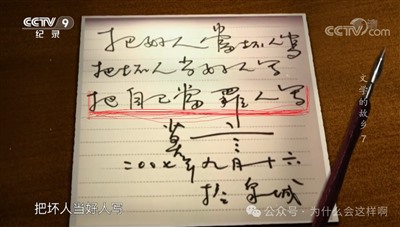 CCTV 9
纪录
CCTV
文学的故乡 7
把好人當坏人寫
把坏人当好人写
把自己當罪人写
莫言
二〇〇七年九月十六
泉城
把坏人当好人写
公众号·为什么会这样啊